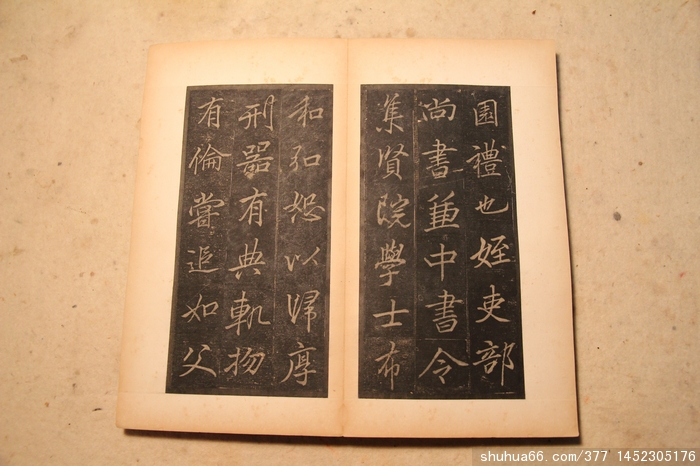 國禮也姪吏部
尚書兼中書令
集賢院學士布
和弘恕以歸厚
刑器有典軌物
有倫嘗追如父
shuhua66.com/377 1452305176